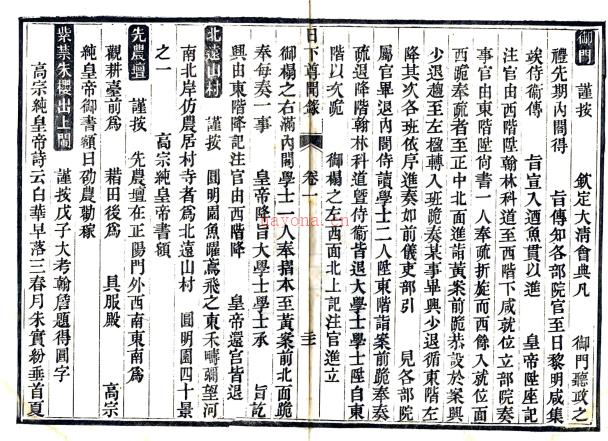 御門 謹按 欽定大清會典凡 御門聽政之
禮先期內閣得 旨傳知各部院官至日黎明咸集
竢侍衛傳 旨宣入酒魚貫以進 皇帝陞座記
注官由西階陞翰林科道至西階下咸就位立部院奏
事官由東階陞尚書一人奉疏折旋而西餘入就位面
西跪奉疏者至正中北面進詣黃案前跪恭設於案興
少退趨至左楹轉入班跪奏某事畢興少退循東階左
降其次各班依序進奏如前儀吏部引 見各部院
屬官畢退內閣侍讀學士二人陞東階詣案前跪奉奏
疏退降階翰林科道暨侍衛皆退大學士學士陞自東
階以次跪 御榻之左西面北上記注官進立
日下尊聞錄 卷一
御榻之右滿內閣學士一人奉摺本至黃案前北面跪
奉每奏一事 皇帝降旨大學士學士承 旨訖
興由東階降記注官由西階降 皇帝還宮皆退
北遠山村 謹按 圓明園魚躍鳶飛之東禾疇彌望河
南北岸仿農居村寺者為北遠山村 圓明園四十景
之一 高宗純皇帝書額
先農壇 謹按 先農壇在正陽門外西南東南為
觀耕臺前為 耤田後為 具服殿 高宗
純皇帝御書額曰劭農勸稼
紫禁朱櫻出上闌 謹按戊子大考翰詹題得圓字
高宗純皇帝詩云白華早落三春月朱實粉垂首夏